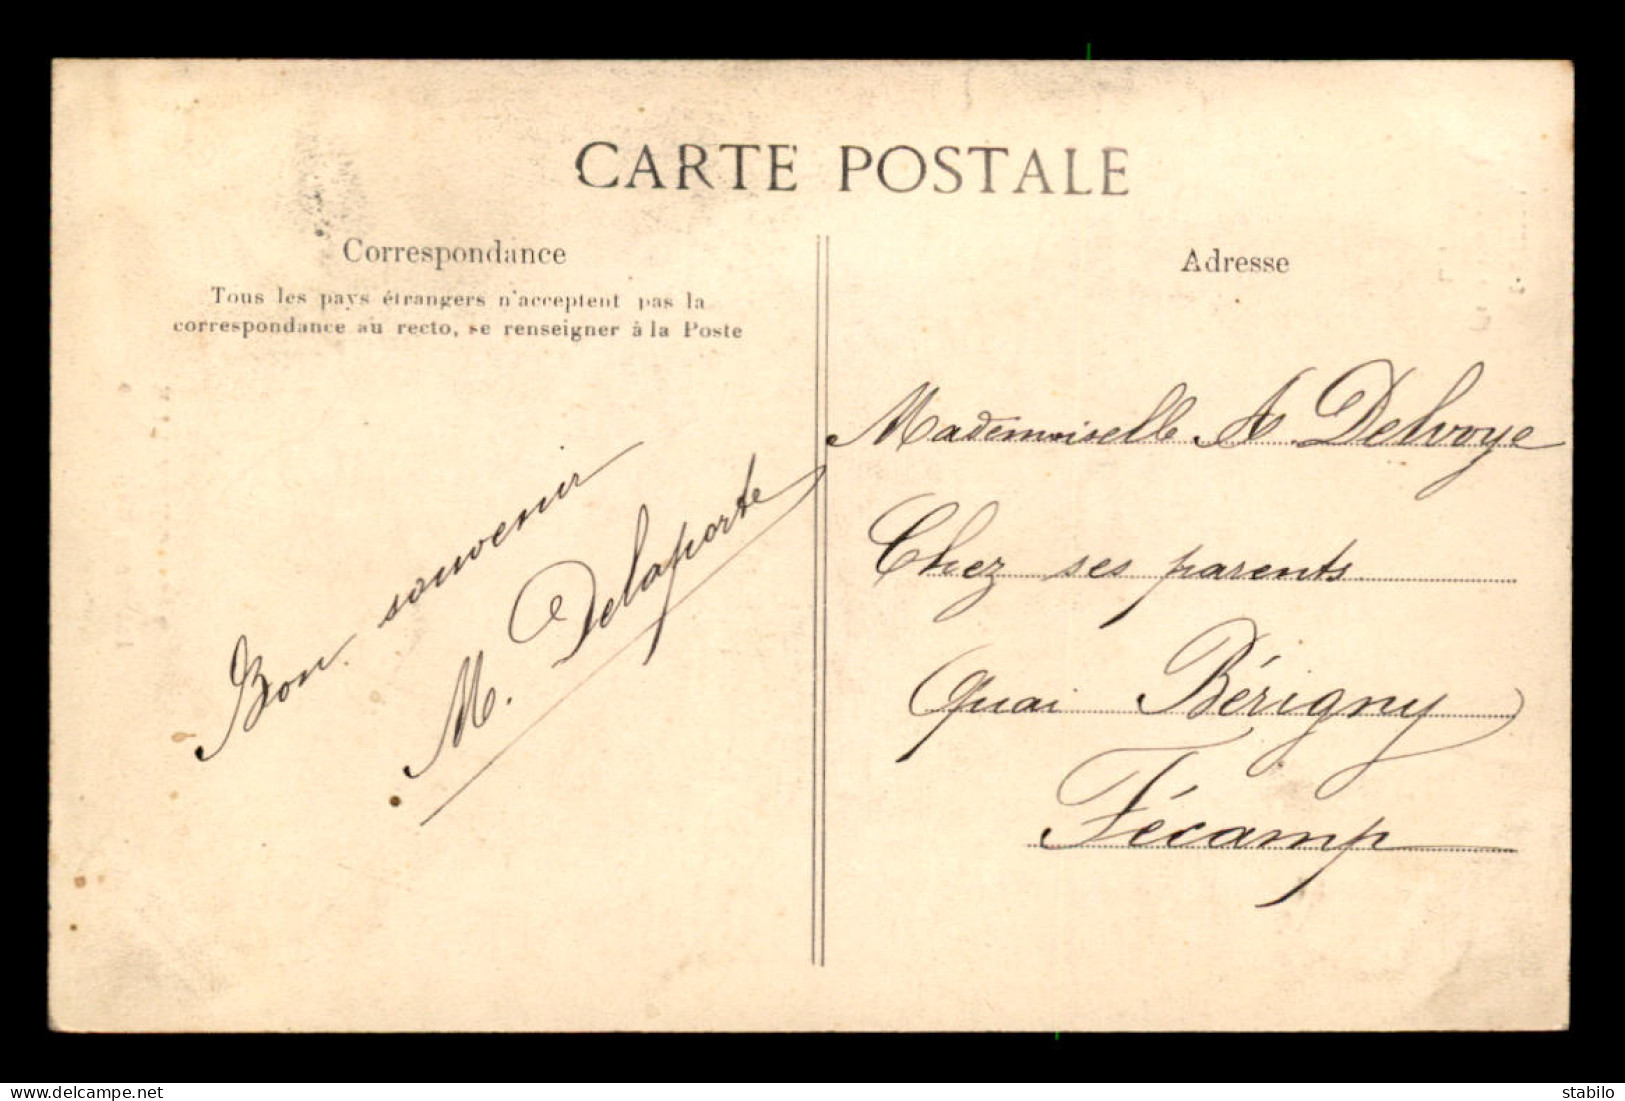 CARTE POSTALE
Correspondance
Tous les pays étrangers n'acceptent pas la
correspondance au recto, se renseigner à la Poste
Bon souvenir
M. Delaporte
Adresse
Mademoiselle A. Delvoye
Chez ses parents
Quai Bérigny
Fécamp
delcampe.net
stabilo